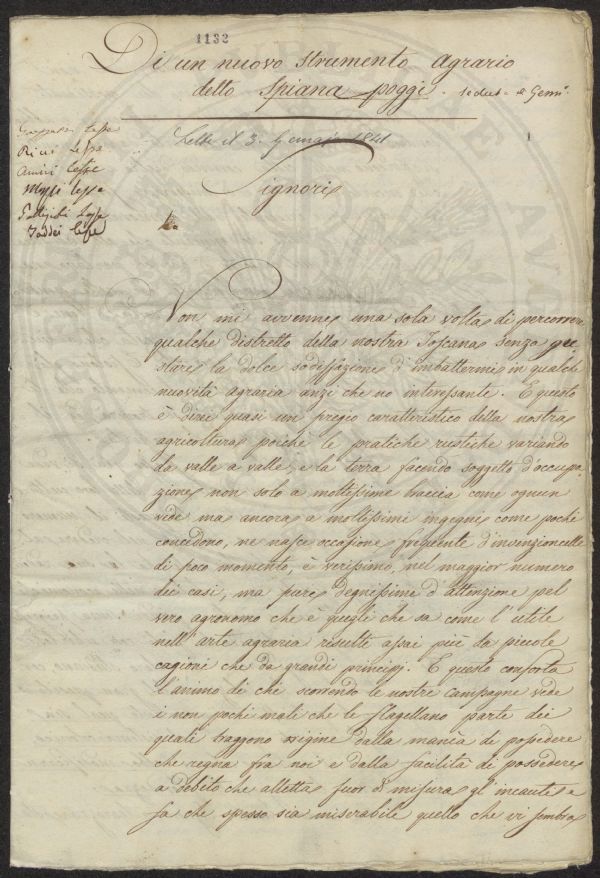 1132
Di un nuovo strumento agrario
detto Spiana-poggi.
Letto il 3. 1841
1
Ricci Lesse
Lesse
Lesse
Lesse
Taddei Lesse
Signori
Non mi avvenne una sola volta di percorrere
qualche distretto della nostra Toscana senza gu
stare la dolce sodisfazione d'imbattermi in qualche
nuovità agraria anzi che no interessante. E questo
è direi quasi un pregio caratteristico della nostra
agricoltura poichè le pratiche rustiche variando
da valle a valle, e la terra facendo soggetto d'occupa-
zione non solo a moltissime braccia come ognun
vede ma ancora a moltissimi ingegni come pochi
concedono, ne nasce occasione frequente d'invenzioncelle
di poco momento, è verissimo, nel maggior numero
dei casi, ma pure degnissime d'attenzione pel
vero agronomo che è quegli che sa come l'utile
nell'arte agraria risulti assai più da piccole
cagioni che da grandi principj. E questo conforta
l'animo di chi scorrendo le nostre campagne vede
i non pochi mali che le flagellano parte dei
quali traggono origine dalla manìa di possedere
che regna fra noi e dalla facilità di possedere
a debito che alletta fuor di misura gl'incauti e
fa che spesso sia miserabile quello che vi sembra